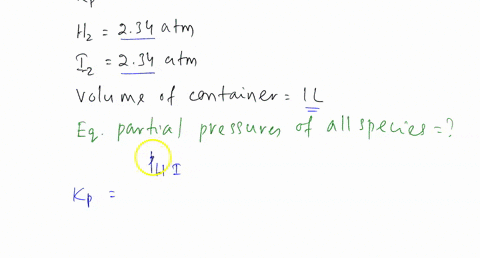 H₂ = 2.34 atm
I₂ = 2.34 atm
Volume of container = 1L
Eq. partial pressures of all species = ?
HI
Kp =